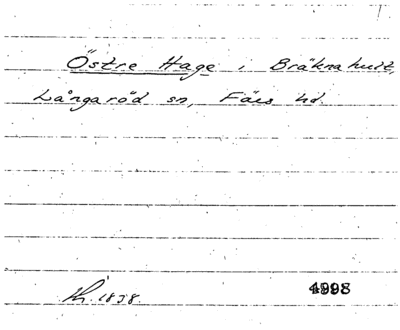 Östre Hage i Bräknahult,
Långaröd sn, Färs hd.
1838.
4998